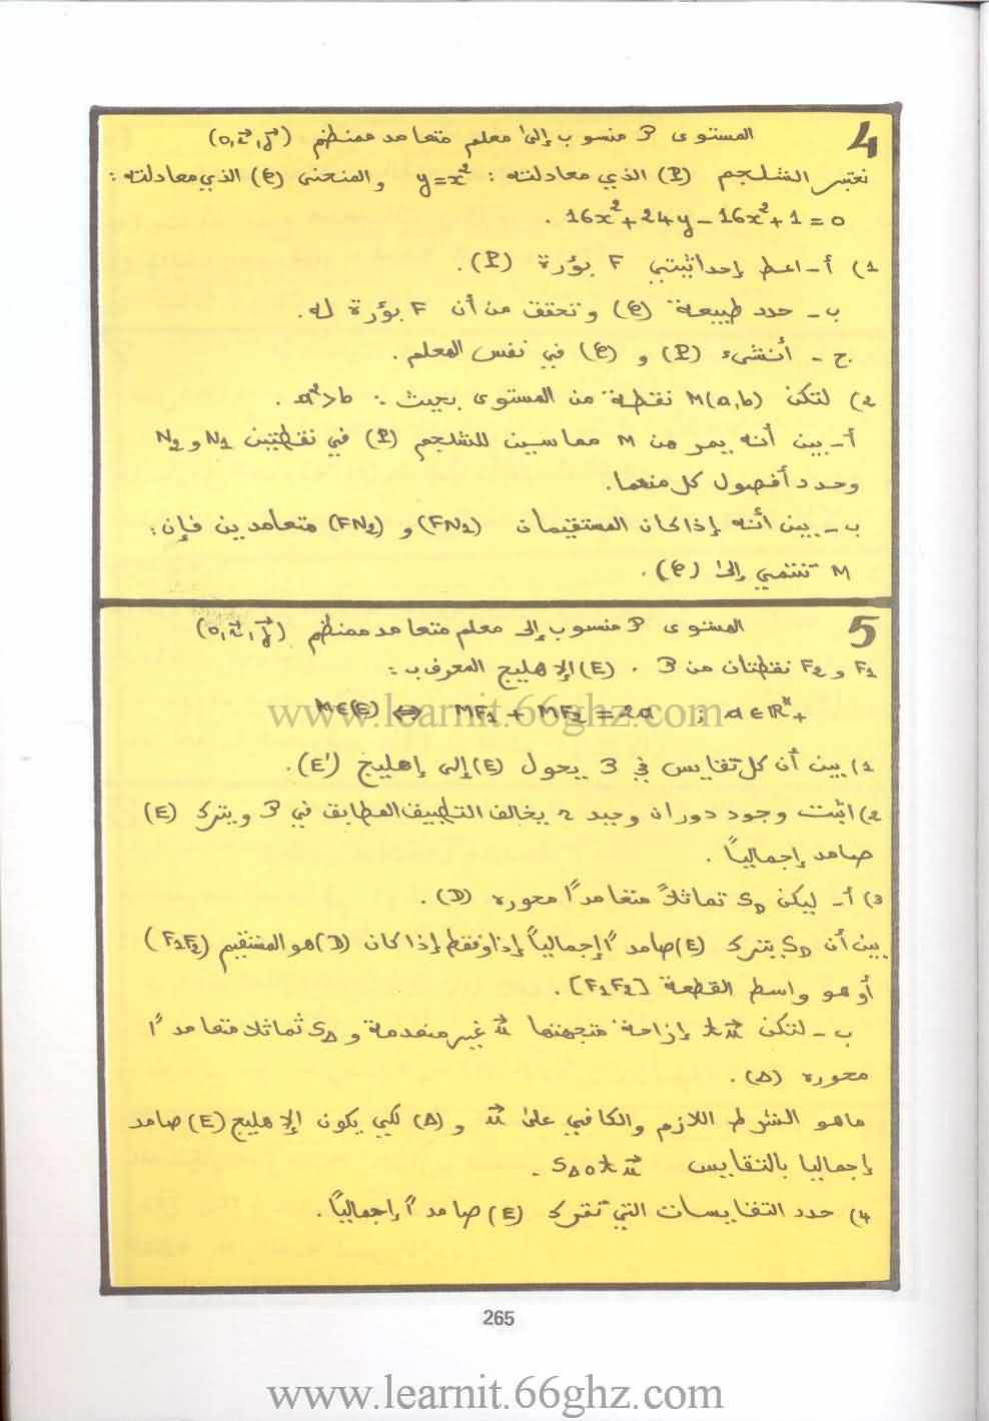 4
المستوى P منسوب إلى معلم متعامد ممنظم (o,i⃗,j⃗)
نعتبر الشلجم (P) الذي معادلته : y=x² والمنحنى (C) الذي معادلته :
16x²+24y-16x²+1=0 .
1) أ- اعط إحداثيتي F بؤرة (P).
ب- حدد طبيعة (C) وتحقق من أن F بؤرة له.
ج- أنشىء (P) و (C) في نفس المعلم.
2) لتكن M(a,b) نقطة من المستوى بحيث : a²>b .
أ- بين أنه يمر من M مماسين للشلجم (P) في نقطتين N1 و N2
وحدد أفصول كل منهما.
ب- بين أنه إذا كان المستقيمان (FN1) و (FN2) متعامدين فإن:
M تنتمي إلى (C).
5
المستوى P منسوب إلى معلم متعامد ممنظم (o,i⃗,j⃗)
F1 و F2 نقطتان من P . (E) الإهليج المعرف ب :
M∈(E) ⇔ MF1 + MF2 = 2a ; a∈ℝ*+
1) بين أن كل تقايس في P يحول (E) إلى إهليج (E').
2) اثبت وجود دوران وحيد r يخالف التطبيق المطابق في P ويترك (E)
صامد إجمالياً .
3) أ- ليكن S_D تماثلاً متعامداً محوره (D).
بين أن S_D يترك (E) صامداً إجمالياً إذا وفقط إذا كان (D) هو المستقيم (F1F2)
أو هو واسط القطعة [F1F2].
ب- لتكن t_u⃗ إزاحة متجهتها u⃗ غير منعدمة و S_Δ تماثلا متعامداً
محوره (Δ).
ماهو الشرط اللازم والكافي على u⃗ و (Δ) لكي يكون الإهليج (E) صامد
إجماليا بالتقايس S_Δ o t_u⃗ .
4) حدد التقايسات التي تترك (E) صامداً إجمالياً.
www.learnit.66ghz.com
265
www.learnit.66ghz.com